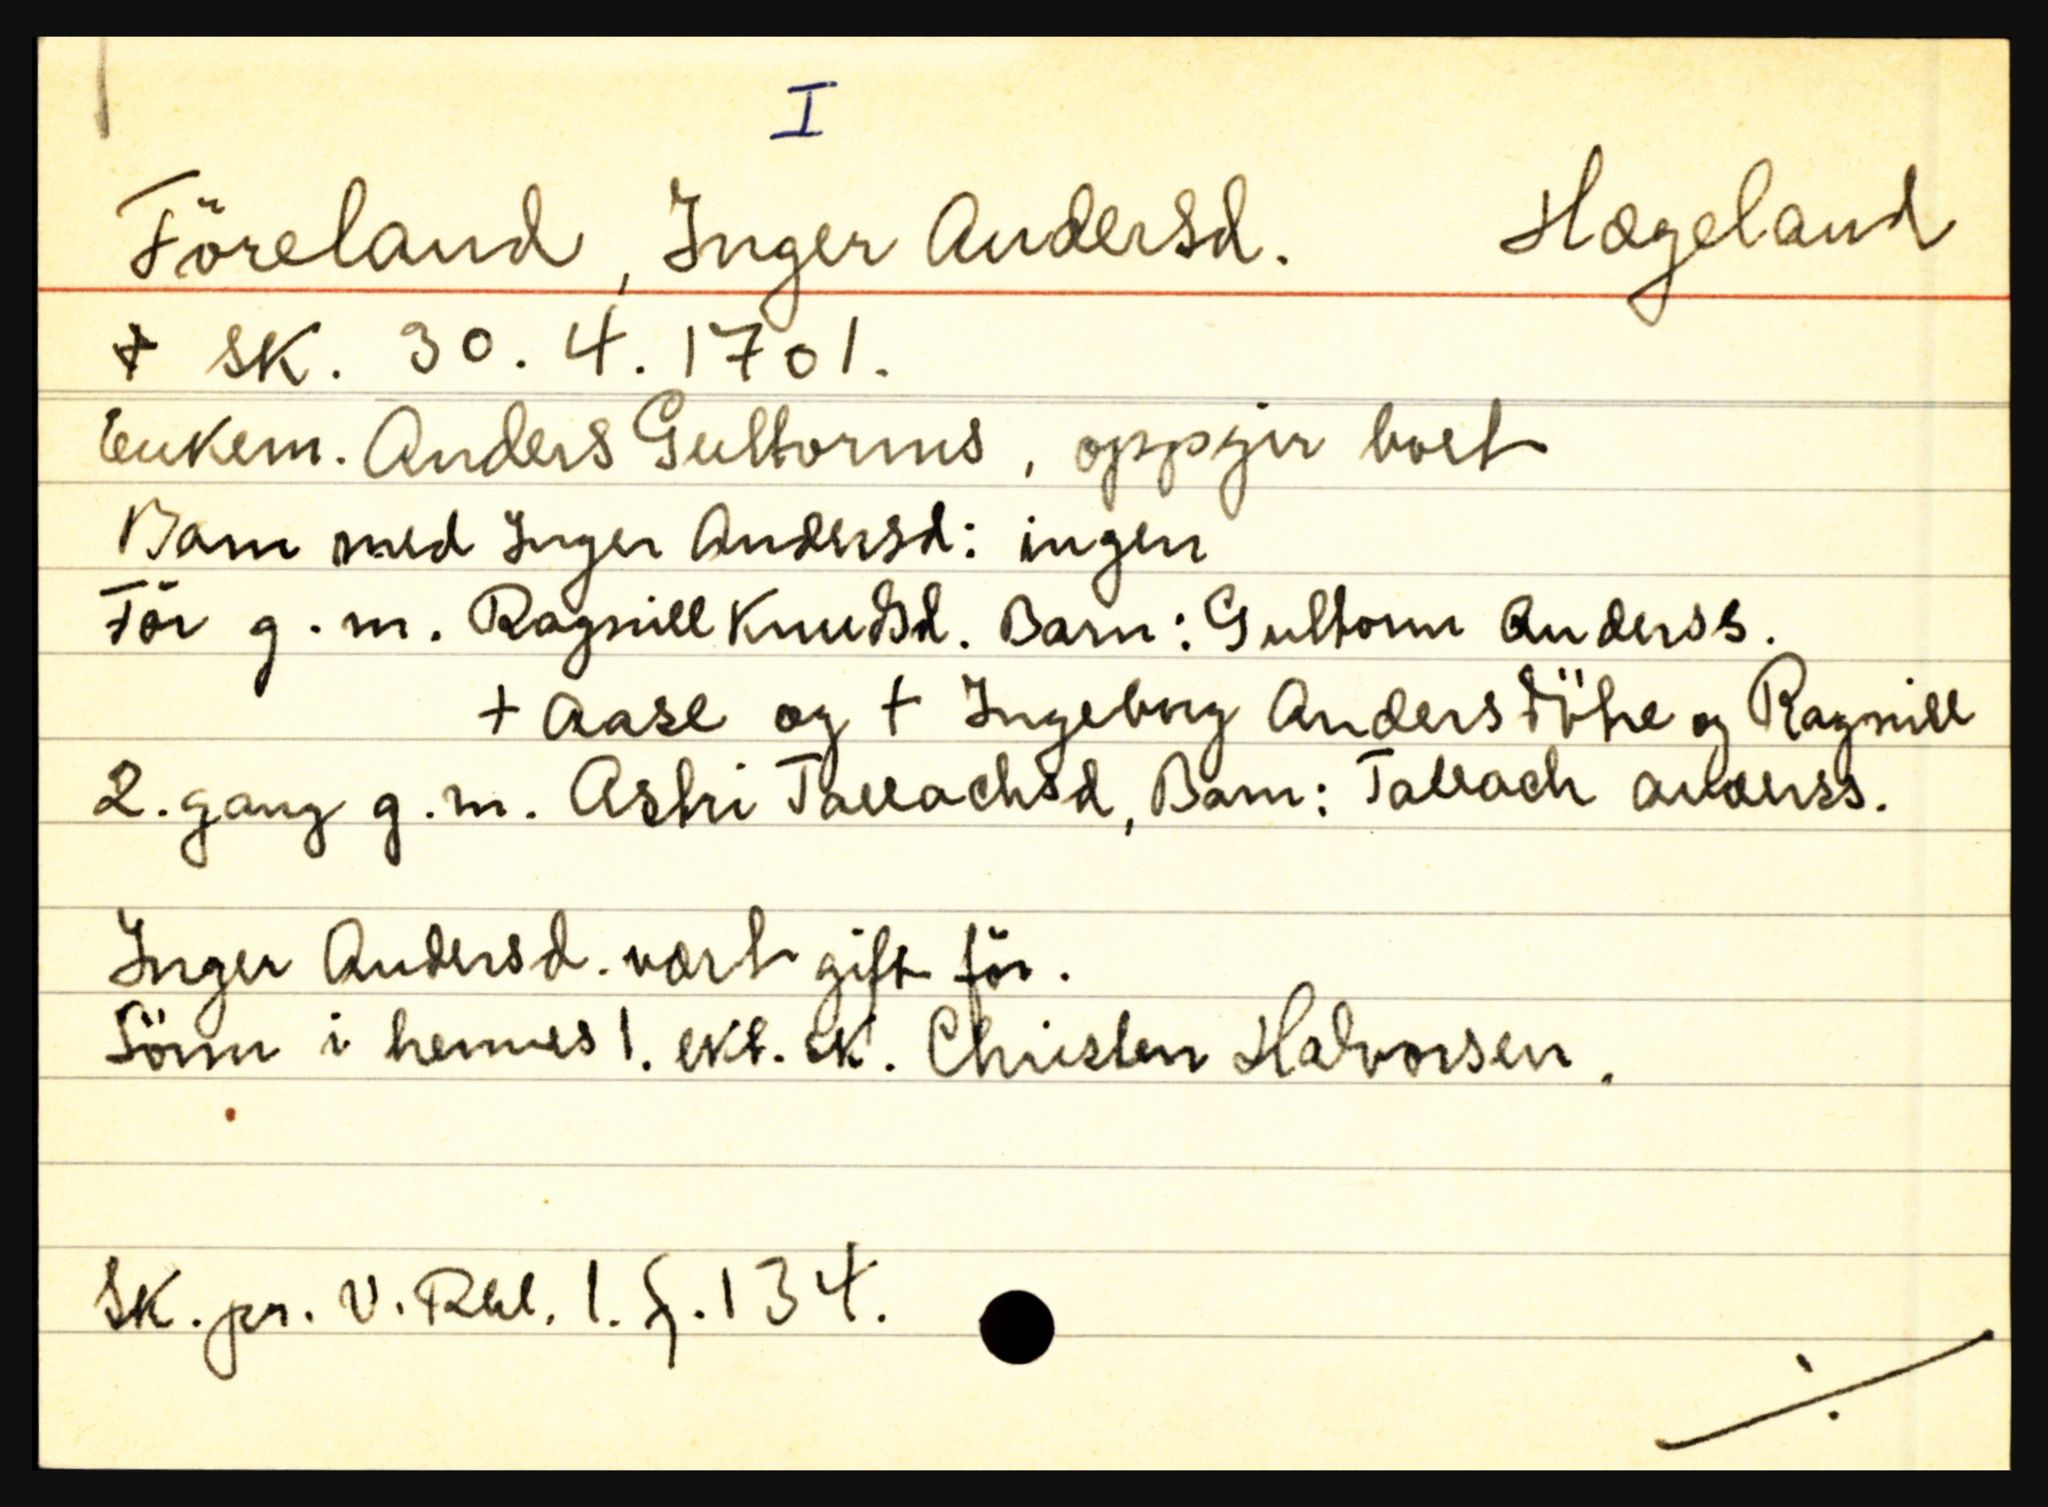 I
Föreland, Inger Andersd. Hægeland
† sk. 30. 4. 1701.
Enkem. Anders Guttorms, oppgir boet
Barn med Inger Andersd: ingen
För g. m. Ragnill Knudsd. Barn: Guttorm Anderss.
† Aase og † Ingeborg Andersdötre og Ragnill
2. gang g. m. Astri Tallachsd, Barn: Tallach Anderss.
Inger Andersd. vært gift för.
Sönn i hennes 1. ekt. sk. Christen Halvorsen.
Sk. pr. V. Rbl. 1. f. 134.